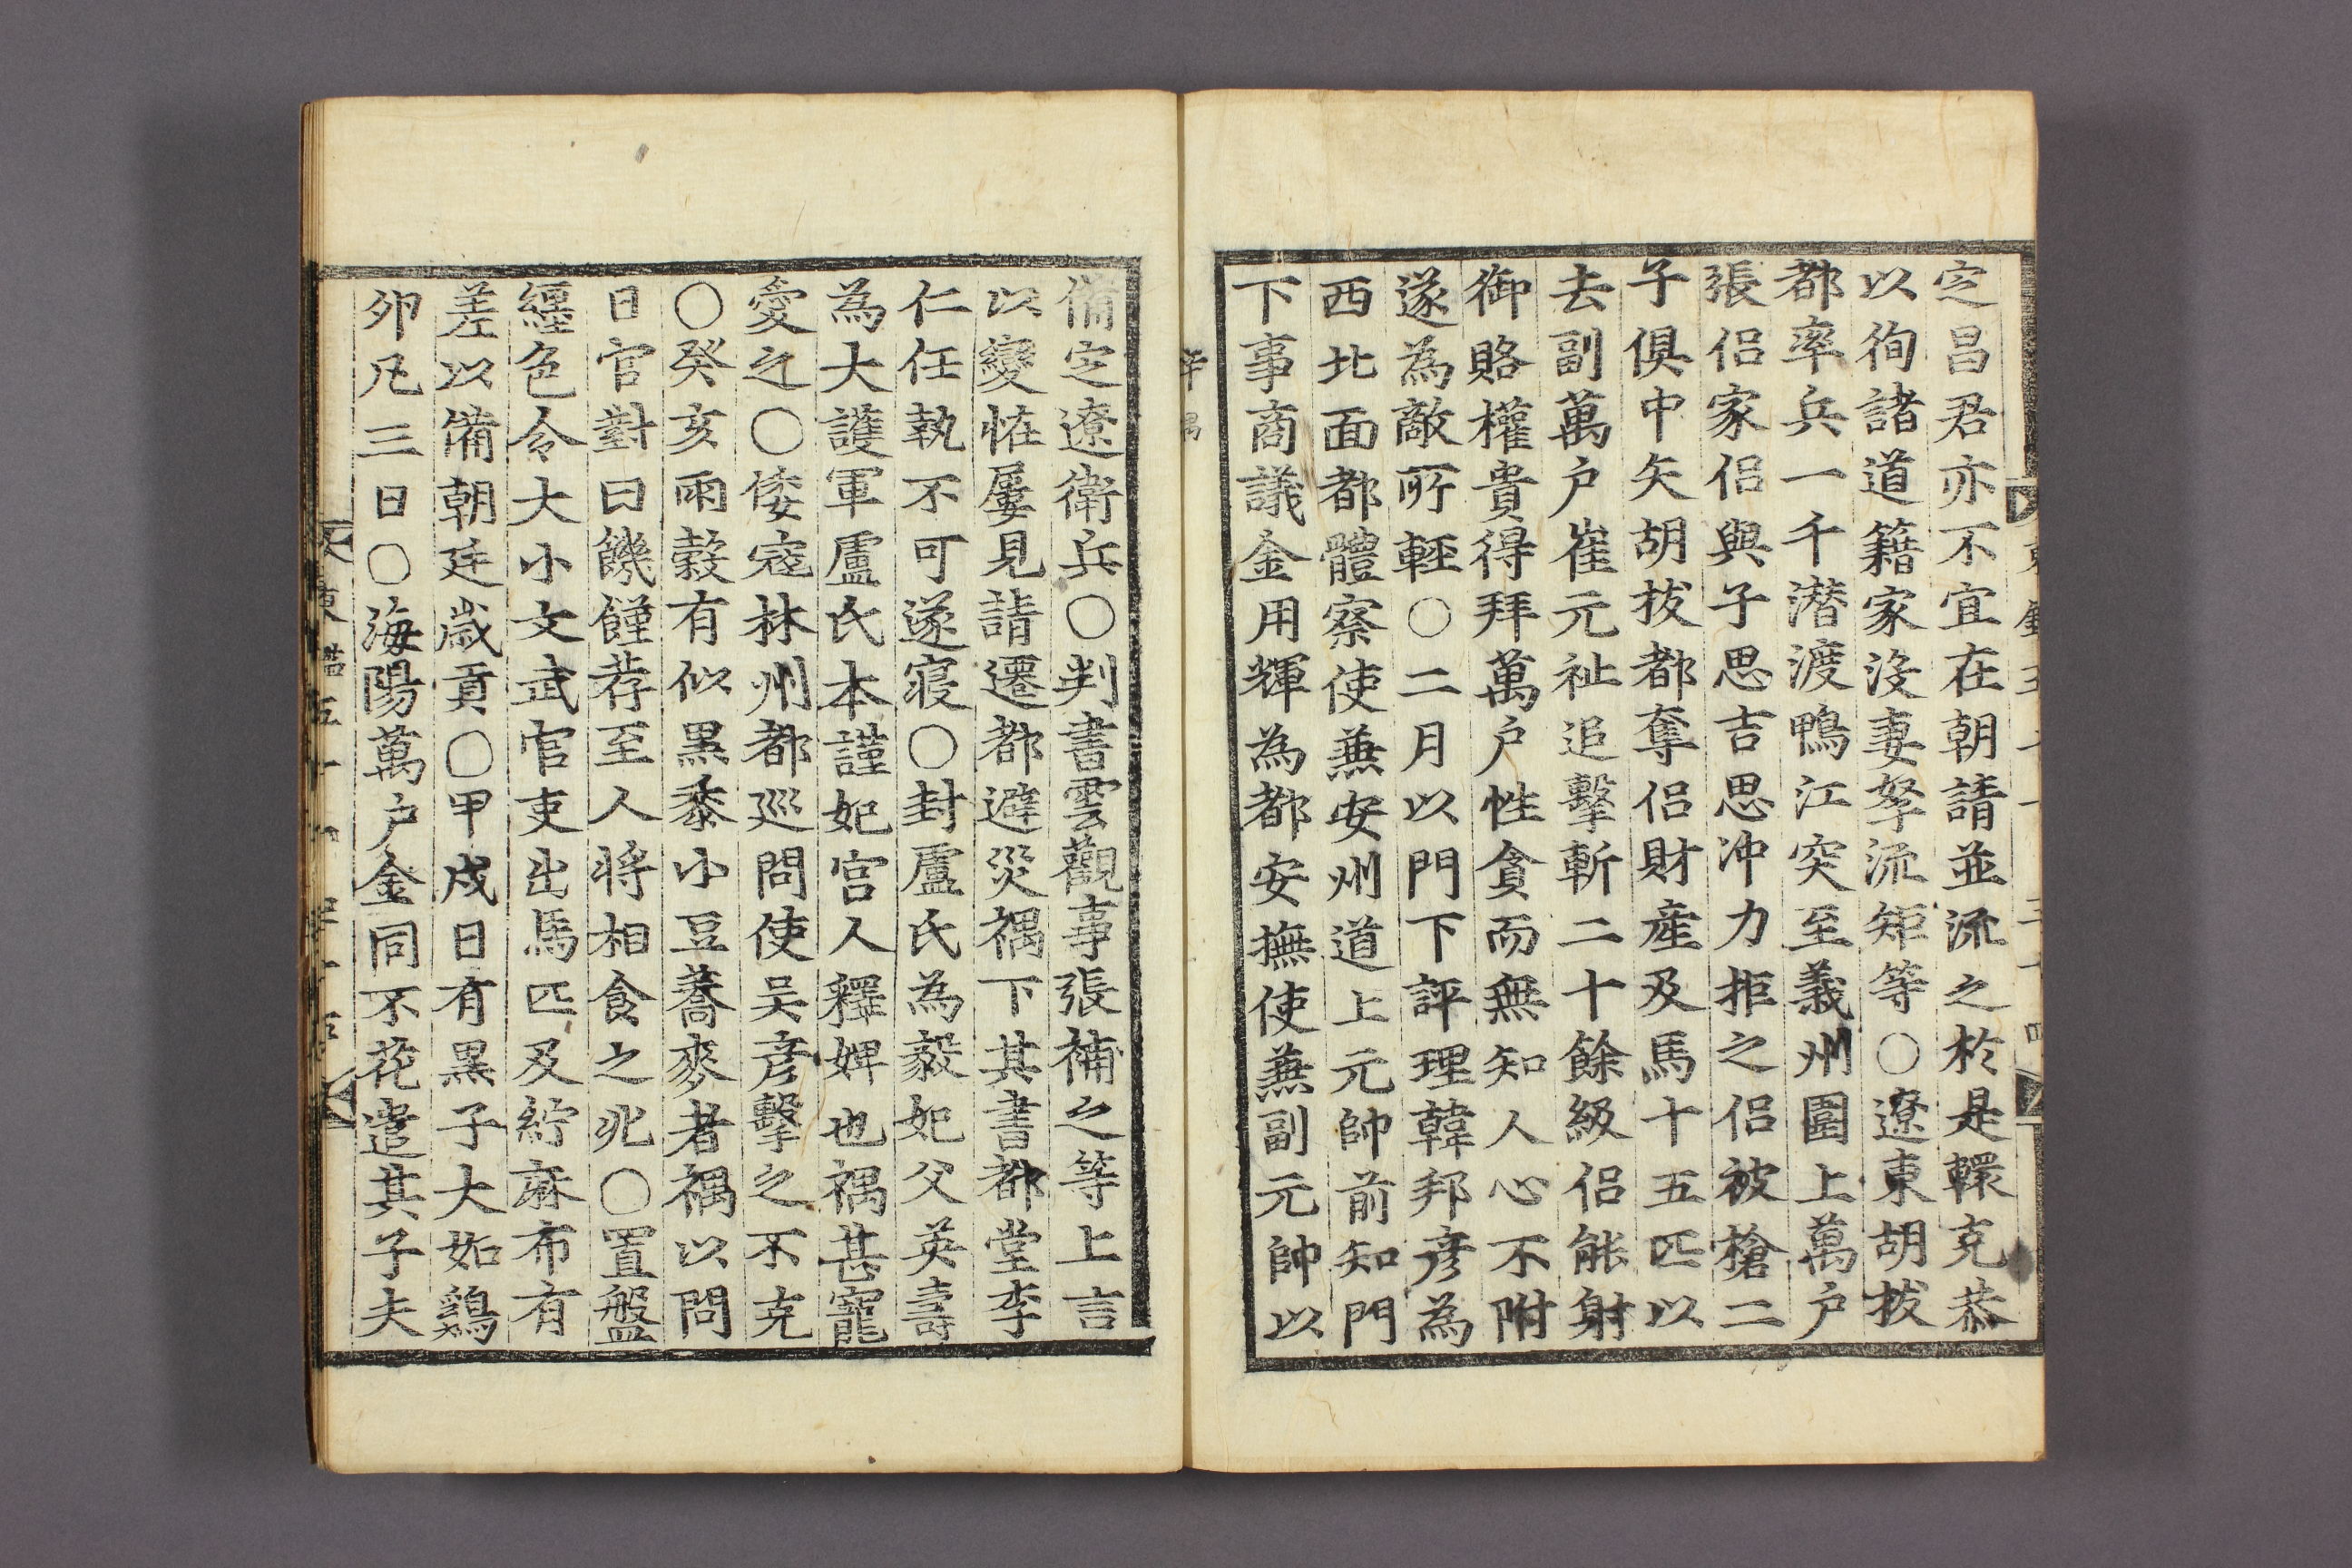 定昌君亦不宜在朝請並流之於是轘克恭
以徇諸道籍家沒妻孥流矩等○遼東胡拔
都率兵一千潛渡鴨江突至義州圍上萬戶
張侶家侶與子思吉思冲力拒之侶被槍二
子俱中矢胡拔都奪侶財産及馬十五匹以
去副萬戶崔元祉追擊斬二十餘級侶能射
御賂權貴得拜萬戶性貪而無知人心不附
遂為敵所輕○二月以門下評理韓邦彦為
西北面都體察使兼安州道上元帥前知門
下事商議金用輝為都安撫使兼副元帥以
辛禑
備定遼衛兵○判書雲觀事張補之等上言
以變怪屢見請遷都避災禑下其書都堂李
仁任執不可遂寢○封盧氏為毅妃父英壽
為大護軍盧氏本謹妃宮人釋婢也禑甚寵
愛之○倭寇林州都巡問使吳彦擊之不克
○癸亥雨穀有似黑黍小豆蕎麥者禑以問
日官對曰饑饉荐至人將相食之兆○置盤
纒色令大小文武官吏出馬匹及紵麻布有
差以備朝廷歲貢○甲戌日有黑子大如鷄
卵凡三日○海陽萬戶金同不花遣其子夫